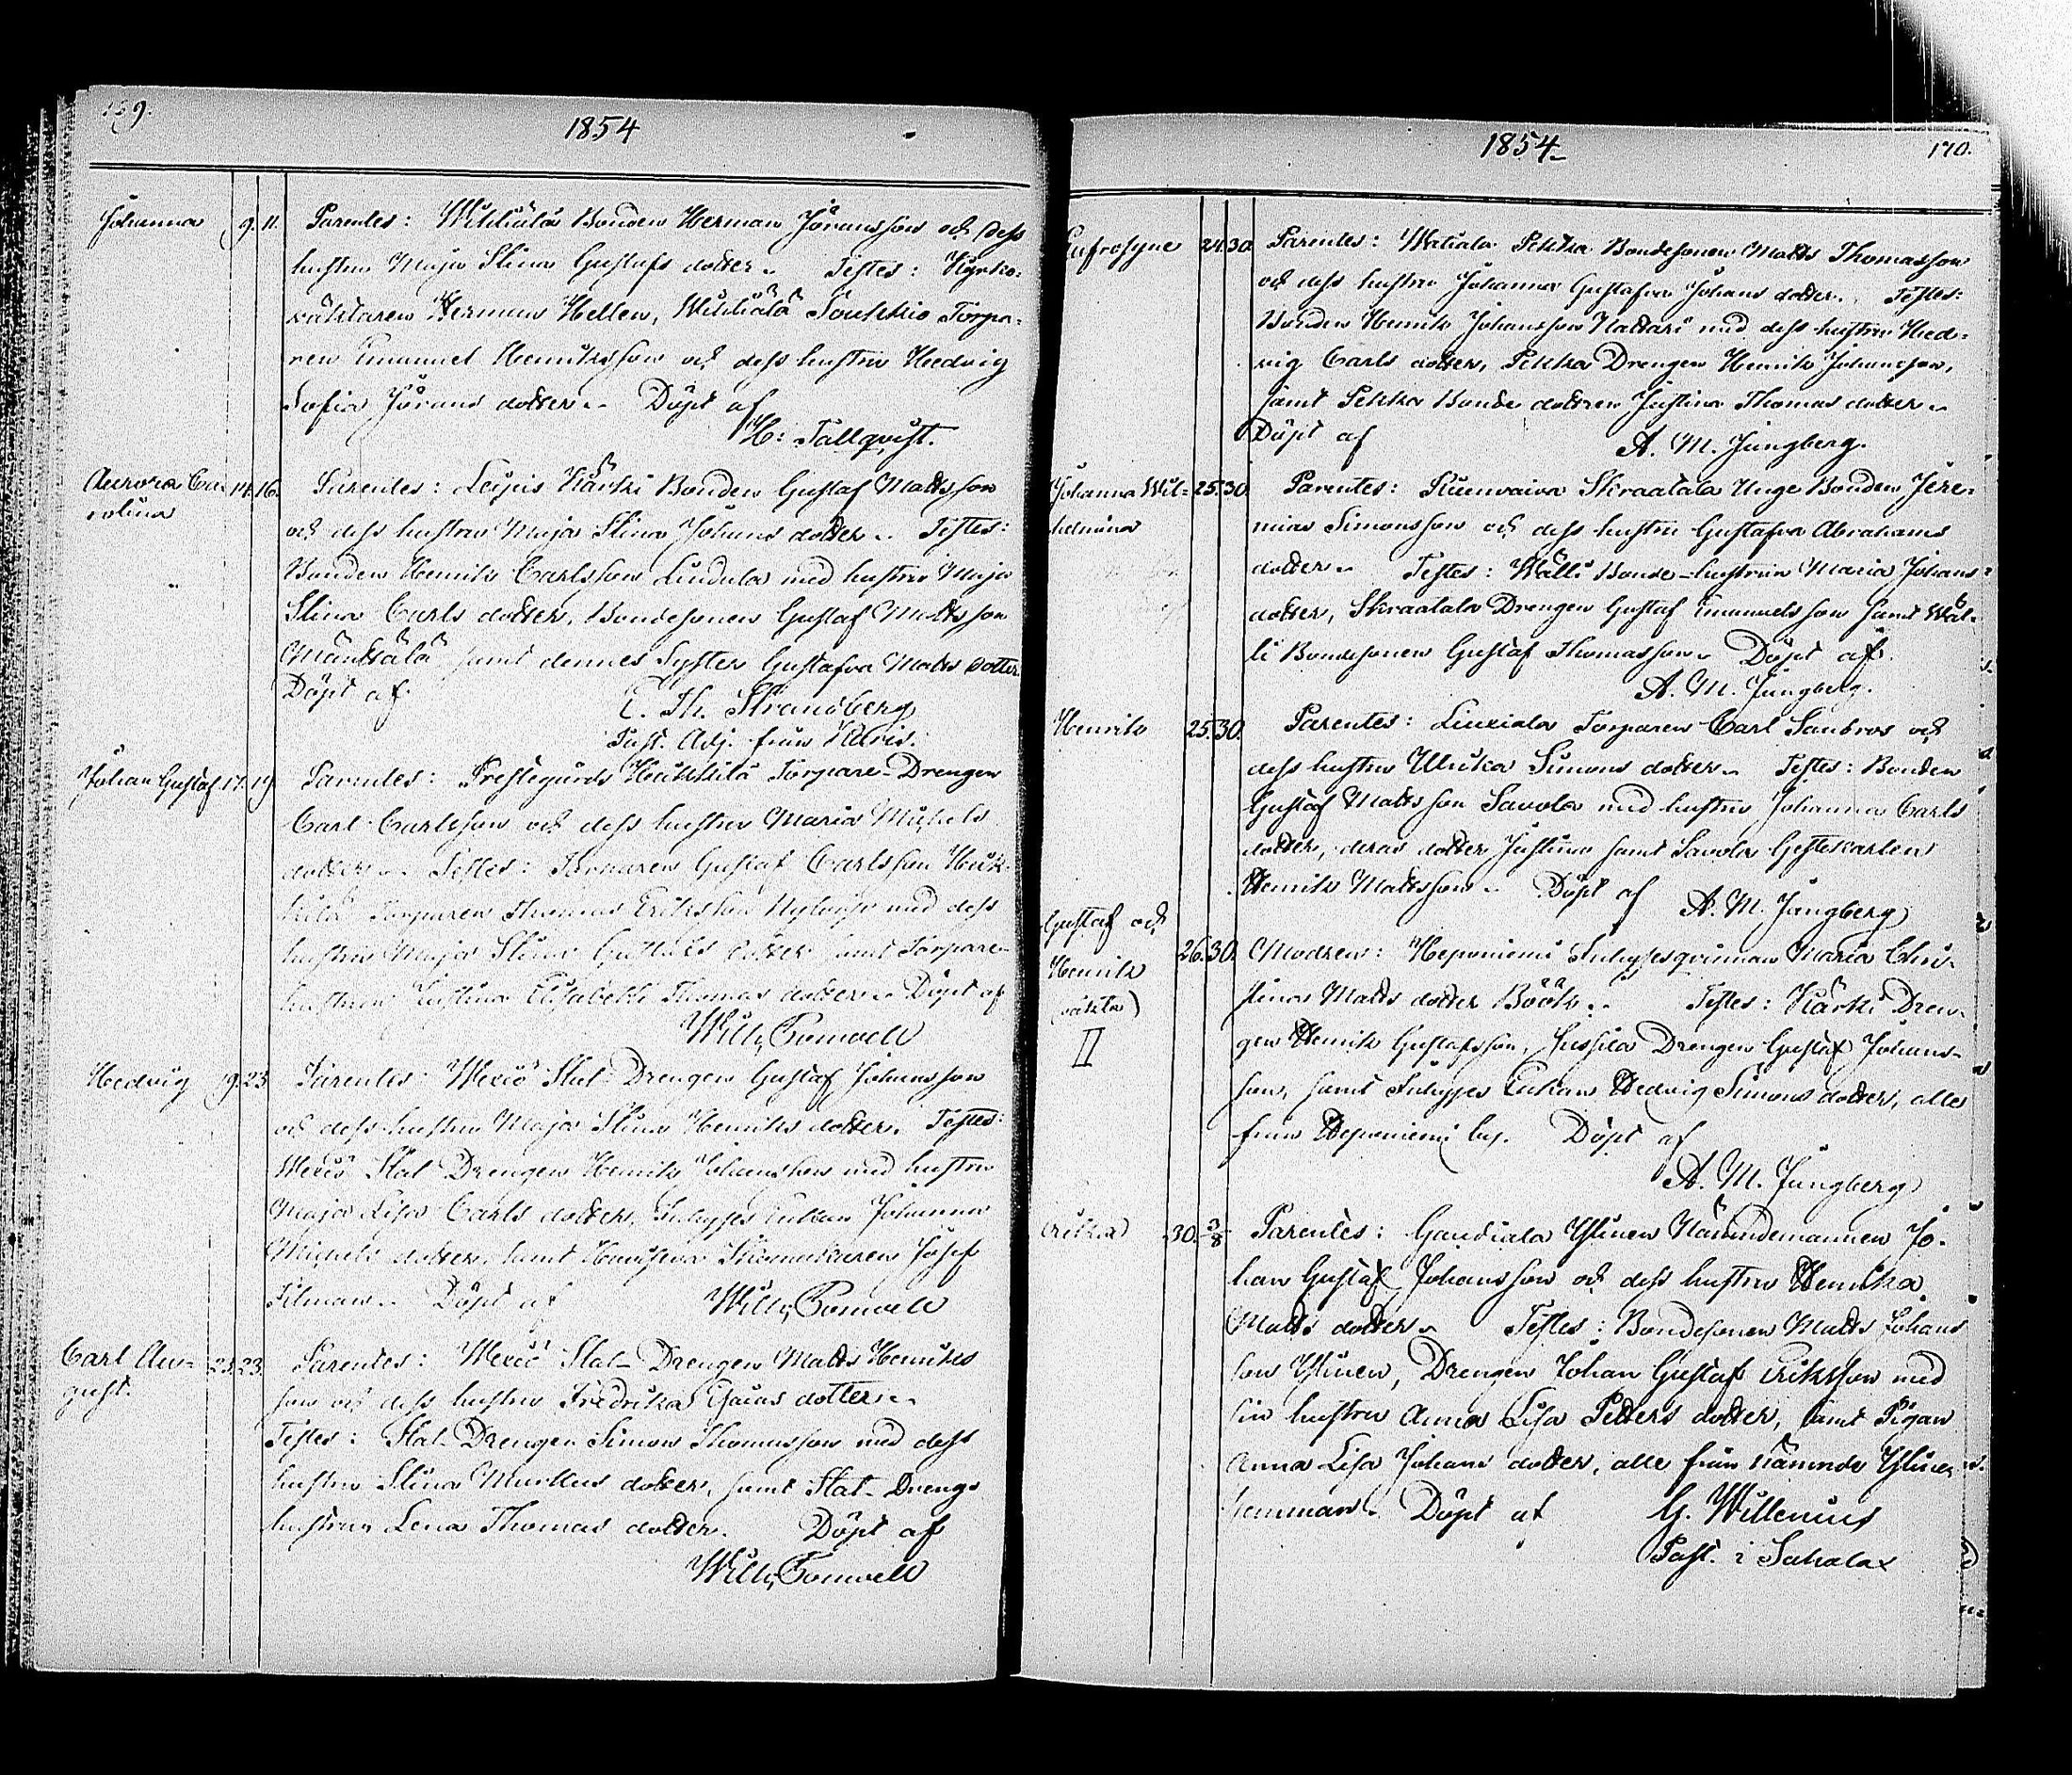 1854
Johanna 9. 11. Parentes: Bonden Herman Jöransson och dess
hustru Maja Stina Gustafs dotter. Testes: Kyrko-
väktaren Herman Hellen, Torpa-
ren Emanuel Henriksson och dess hustru Hedvig
Sofia Jörans dotter. Döpt af
H: Tallqvist.
Aurora Ca- 14. 16. Parentes: Kärki Bonden Gustaf Mattsson
rolina och dess hustru Maja Stina Johans dotter. Testes:
Bonden Henrik Carlsson Lindula med hustru Maja
Stina Carls dotter, Bondesonen Gustaf Mattsson
Mänttälä samt dennes Syster Gustafva Matts dotter.
Döpt af E. Th. Strandberg
Past. Adj. från Karis.
Johan Gustaf 17. 19. Parentes: Prestegårds Heikkilä Torpare-Drengen
Carl Carlsson och dess hustru Maria Michels
dotter. Testes: Torparen Gustaf Carlsson Heik-
kilä Torparen Thomas Eriksson med dess
hustru Maja Stina Gustafs dotter samt Torpare-
hustrun Justina Elisabeth Thomas dotter. Döpt af
Willh. Tomvell
Hedvig 19. 23. Parentes: Wexiö Stat-Drengen Gustaf Johansson
och dess hustru Maja Stina Henriks dotter. Testes:
Wexiö Stat-Drengen Henrik Johansson med hustru
Maja Lisa Carls dotter, Inhyses Enkan Johanna
Michels dotter, samt Skomakaren Josef
Filman. Döpt af Willh. Tomvell
Carl Au- 23. 23. Parentes: Wexiö Stat-Drengen Matts Henriks
gust. son och dess hustru Fredrika Esaias dotter.
Testes: Stat-Drengen Simon Thomasson med dess
hustru Stina Matthis dotter, samt Stat-Drengs
hustrun Lena Thomas dotter. Döpt af
Willh. Tomvell
1854. 170.
Eufrosyne 24. 30. Parentes: Watiala Pekka Bondesonen Matts Thomasson
och dess hustru Johanna Gustafva Johans dotter. Testes:
Bonden Henrik Johansson Kattari med dess hustru Hed-
vig Carls dotter, Pekka Drengen Henrik Johansson,
samt Pekka Bonde dottren Justina Thomas dotter.
Döpt af A. M. Jungberg.
Johanna Wil- 25. 30. Parentes: Skraatala Unge Bonden Jere-
helmina mias Simonsson och dess hustru Gustafva Abrahams
dotter. Testes: Wälli Bonde-hustrun Maria Johans
dotter, Skraatala Drengen Gustaf Emanuelsson samt Wäl-
li Bondesonen Gustaf Thomasson. Döpt af
A. M. Jungberg.
Henrik 25. 30. Parentes: Liuxiala Torparen Carl Sanbros och
dess hustru Ulrika Simons dotter. Testes: Bonden
Gustaf Mattsson Savola med hustru Johanna Carls
dotter, deras dotter Justina samt Savola Gestekarlen
Henrik Mattsson. Döpt af A. M. Jungberg
Gustaf och
Henrik 26. 30. Modren: Heponiemi Inhysesqvinnan Maria Chri-
(oäkta) stina Matts dotter Böök. Testes: Kärki Dren-
II gen Henrik Gustafsson, Jussila Drengen Gustaf Johans-
son, samt Inhyses Enkan Hedvig Simons dotter, alla
från Heponiemi by. Döpt af
A. M. Jungberg
Erika 30. 3/8 Parentes: Gandiala Ylinen Nämndemannen Jo-
han Gustaf Johansson och dess hustru Henrika
Matts dotter. Testes: Bondesonen Matts Johans
son Ylinen, Drengen Johan Gustaf Eriksson med
sin hustru Anna Lisa Petters dotter, samt Pigan
Anna Lisa Johans dotter, alla från nämnde Ylinen
hemman. Döpt af G. Willenius
Past. i Sahalax